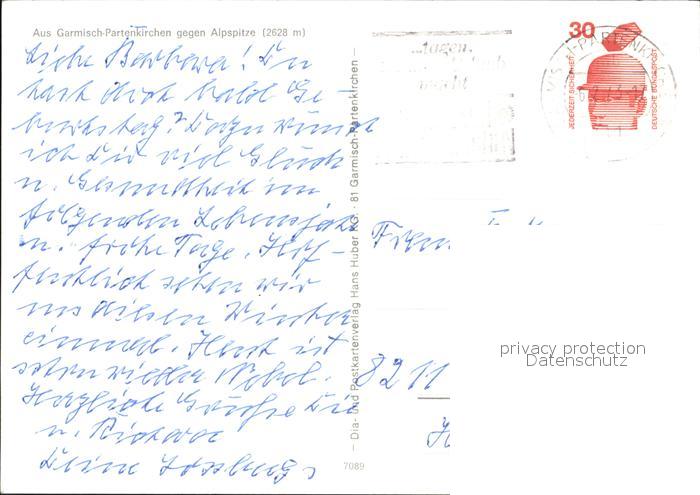 Aus Garmisch-Partenkirchen gegen Alpspitze (2628 m)
Liebe Barbara! Du
hast doch bald Ge-
burtstag? Dazu wünscht
ich Dir viel Glück
u. Gesundheit im
folgenden Lebensjahr
u. frohe Tage. Hof-
fentlich sehen wir
uns diesen Winter
einmal. Heut ist
schon wieder Nebel.
Herzliche Grüße Dir
u.
Deine
– Dia- und Postkartenverlag Hans Huber KG. · 81 Garmisch-Partenkirchen –
7089
tagen.
30
JEDERZEIT SICHERHEIT
DEUTSCHE BUNDESPOST
8211
privacy protection
Datenschutz